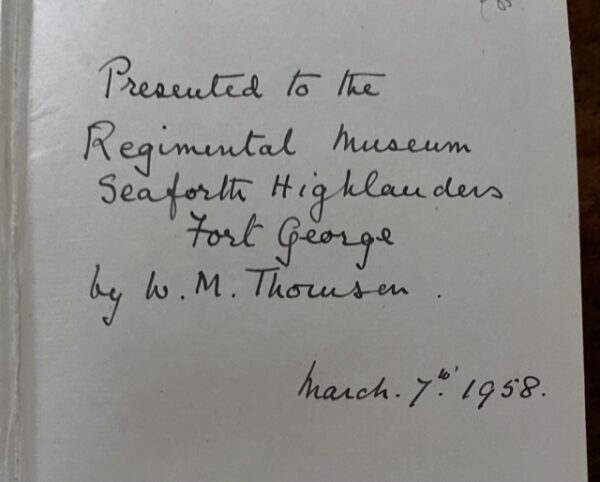 Presented to the
Regimental Museum
Seaforth Highlanders
Fort George
by W. M. Thomson.
March. 7th. 1958.